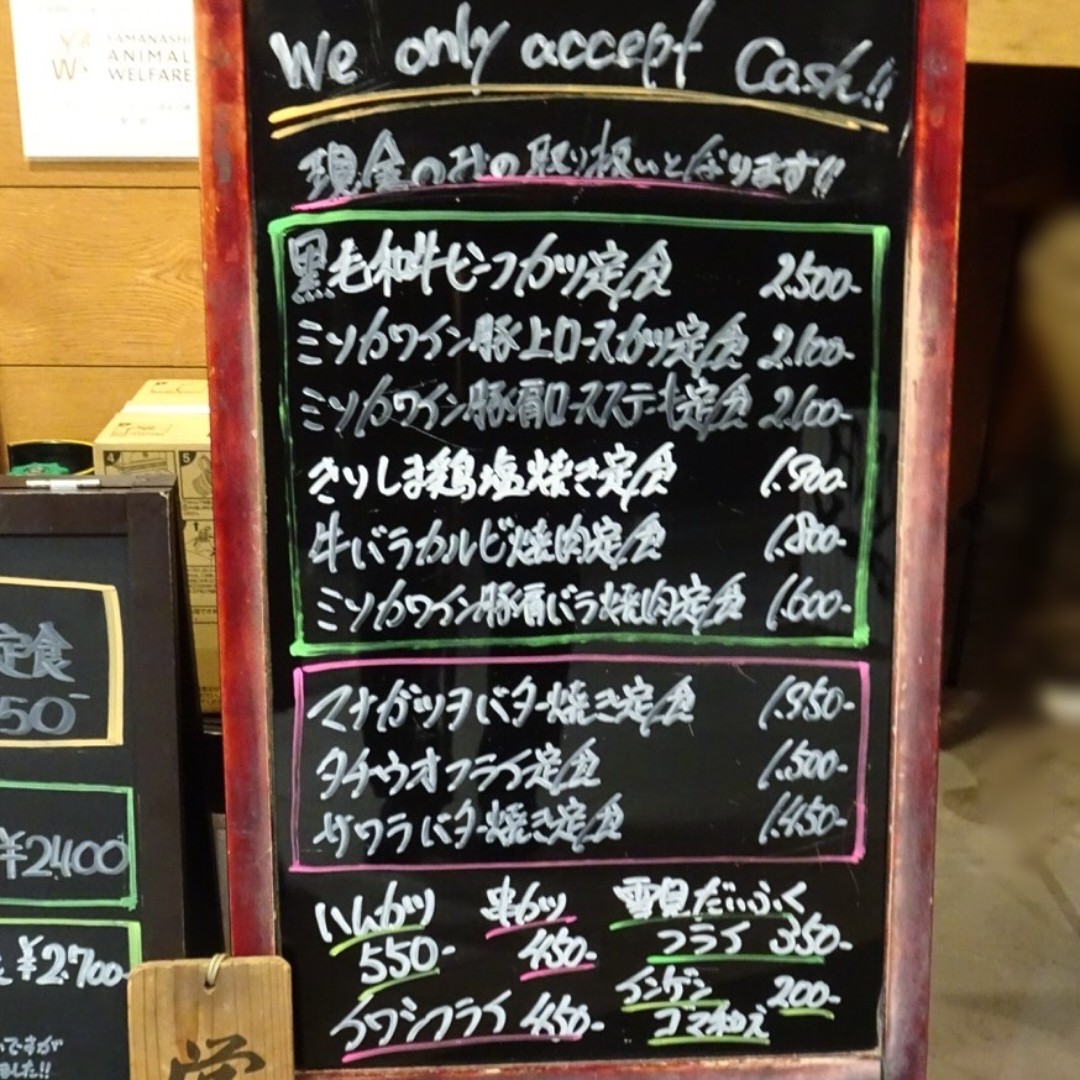 YAMANASHI
ANIMAL
WELFARE
We only accept Cash!!
現金のみの取り扱いとなります!!
黒毛和牛ビーフカツ定食 2.500-
ミソカワイン豚上ロースカツ定食 2.100-
ミソカワイン豚肩ロースステーキ定食 2.100-
きりしま鶏塩焼き定食 1.900-
牛バラカルビ焼肉定食 1.800-
ミソカワイン豚肩バラ焼肉定食 1.600-
マナガツヲバター焼き定食 1.950-
タチウオフライ定食 1.500-
サワラバター焼き定食 1.450-
ハムカツ 串カツ 雪見だいふく
550- 450- フライ 350-
インゲン 200-
イワシフライ 450- ゴマ和え
定食
50-
¥2400
¥2.700-
ですが
ました!!